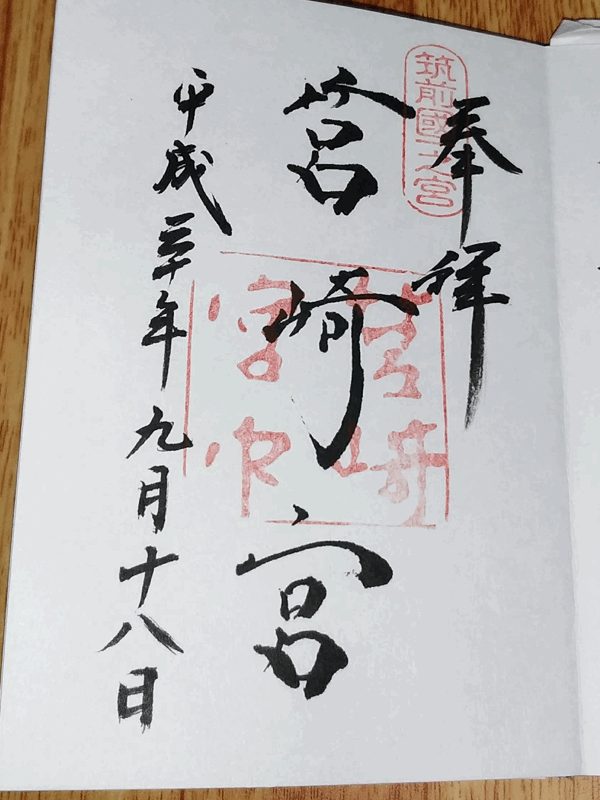 筑前國一之宮
奉拝
筥崎宮
筥崎
宮印
平成三十年九月十八日